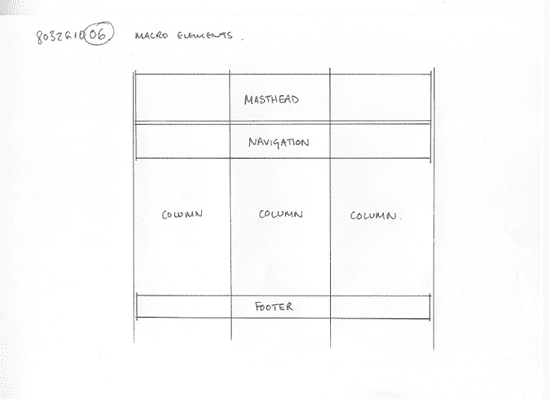 8032GRID06 MACRO ELEMENTS.
MASTHEAD
NAVIGATION
COLUMN COLUMN COLUMN.
FOOTER